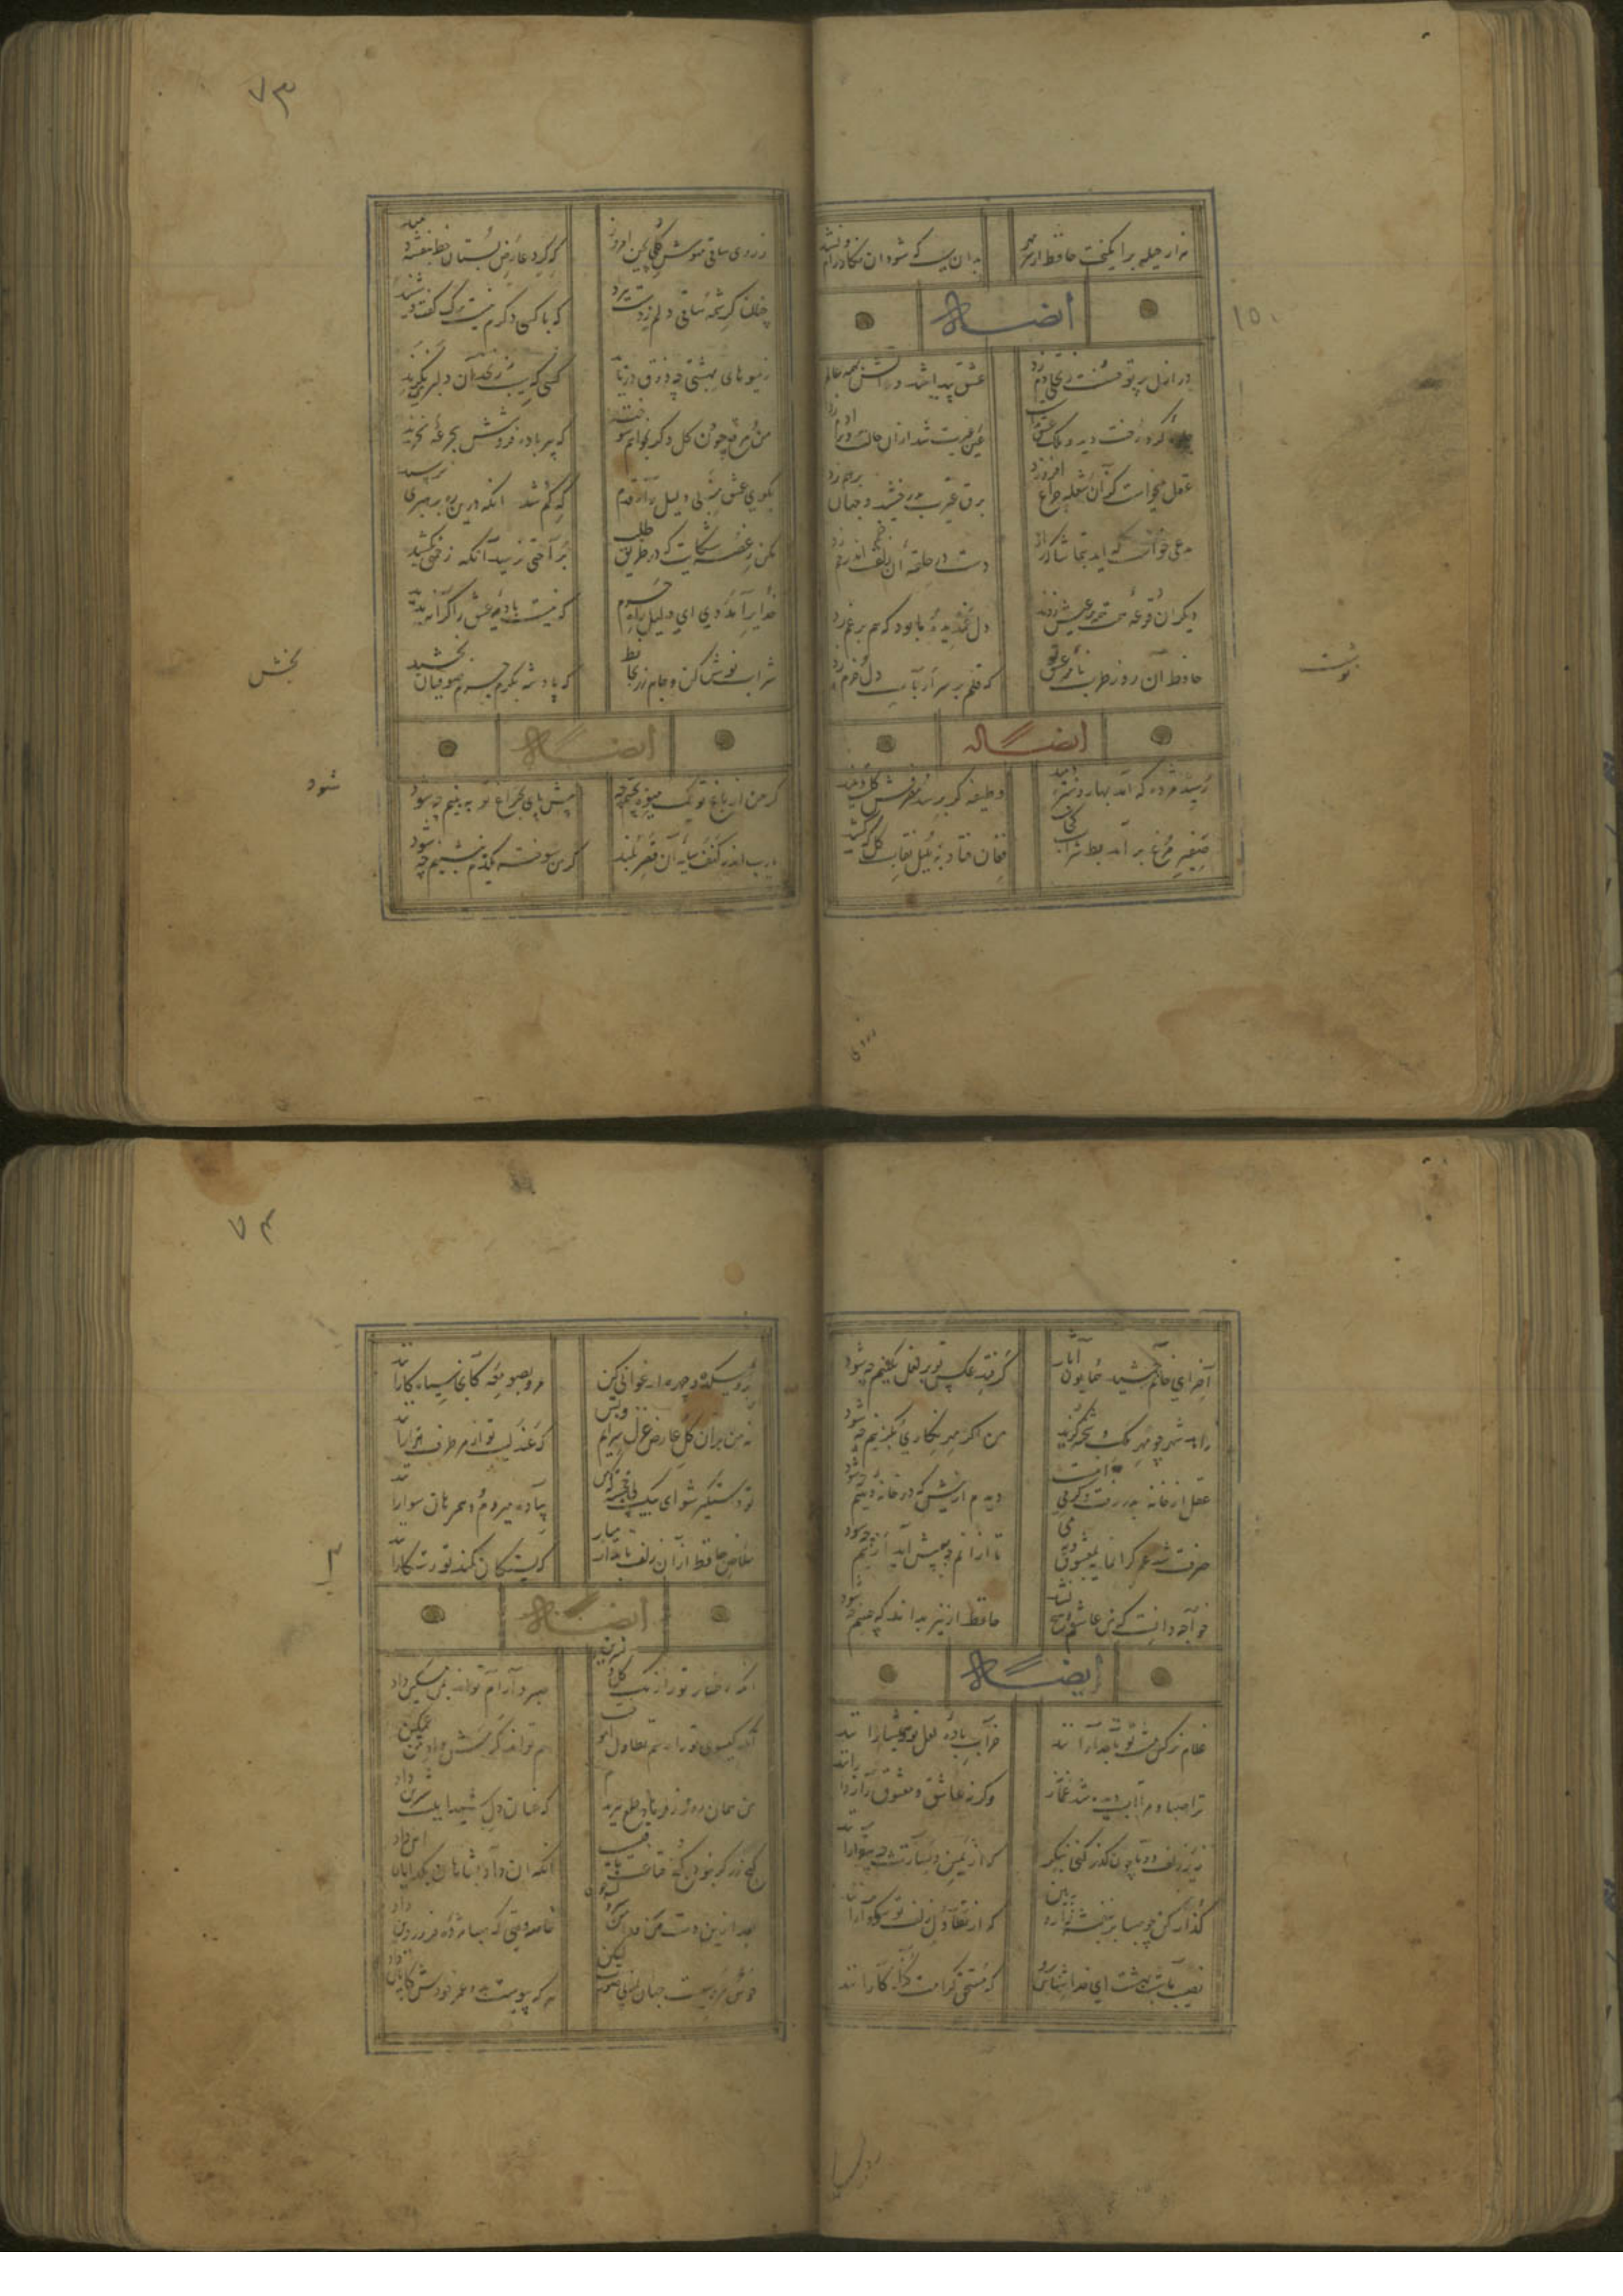 ۷۳
هزار حیله برانگیخت حافظ از سر مهر بدان هوس که شود آن نگار رام و نشد
ایضا له
۱۵۰
در ازل پرتو حسنت ز تجلی دم زد عشق پیدا شد و آتش بهمه عالم زد
جلوه کرد رخت دید ملک عشق نداشت عین غیرت شد ازان حال و بر آدم زد
عقل میخواست کزآن شعله چراغ افروزد برق غیرت بدرخشید و جهان برهم زد
مدعی خواست که آید بتماشاکه راز
دست در حلقه آن زلف خم اندر خم زد
دیگران قرعه قسمت همه بر عیش زدند دل غمدیده ما بود که هم بر غم زد
حافظ آن روز طربنامه عشق تو نوشت که قلم بر سر اسباب دل خرم زد
ایضا له
رسید مژده که آمد بهار و سبزه دمید وظیفه گر برسد مصرفش گلست و نبید
صفیر مرغ برآمد بط شراب کجاست فغان فتاد به بلبل نقاب گل که کشید
ز روی ساقی مهوش گلی بچین امروز که گرد عارض بستان خط بنفشه دمید
چنان کرشمه ساقی دلم ز دست ببرد که با کسی دگرم نیست برگ گفت و شنید
ز میوهای بهشتی چه ذوق دریابد کسی که سیب زنخدان دلبری نگزید
من مرقع چون گل دگر بخواهم سوخت که پیر باده فروشش بجرعه نخرید
بکوی عشق منه بی دلیل راه قدم که گم شد آنکه درین ره برهبری نرسید
مکن ز غصه شکایت که در طریق طلب براحتی نرسید آنکه زحمتی نکشید
خدایرا مددی ای دلیل راه حرم که نیست بادیه عشق را کرانه پدید
شراب نوش کن و جام زر بحافظ بخش که پادشه بکرم جرم صوفیان بخشید
ایضا له
گر من از باغ تو یک میوه بچینم چه شود پیش پای بچراغ تو ببینم چه شود
یارب اندر کنف سایه آن سرو بلند گر من سوخته یکدم بنشینم چه شود
۷۴
آخر ای خاتم جمشید همایون آثار گر فتد عکس تو بر لعل نگینم چه شود
زاهد شهر چو مهر ملک و شحنه گزید من اگر مهر نگاری بگزینم چه شود
عقل از خانه بدر رفت و گر می اینست دیدم از پیش که در خانه دینم چه شود
صرف شد عمر گرانمایه بمعشوق و می تا ازانم چه بپیش آید ازینم چه شود
خواجه دانست که من عاشقم و هیچ نگفت حافظ ار نیز بداند که چنینم چه شود
ایضا له
غلام نرگس مست تو تاجدارانند خراب باده لعل تو هوشیارانند
ترا صبا و مرا آب دیده شد غماز وگرنه عاشق و معشوق رازدارانند
بزیر زلف دوتا چون گذر کنی بنگر که از یمین و یسارت چه بیقرارانند
گذار کن چو صبا بر بنفشه زار و ببین که از تطاول زلف تو سوگوارانند
نصیب ماست بهشت ای خداشناس برو که مستحق کرامت گناهکارانند
برو بمیکده و چهره ارغوانی کن مرو بصومعه کآنجا سیاه کارانند
نه من بران گل عارض غزل سرایم و بس که عندلیب تو از هر طرف هزارانند
تو دستگیر شو ای پیک پی خجسته که من پیاده میروم و همرهان سوارانند
خلاص حافظ ازان زلف تابدار مباد که بستگان کمند تو رستگارانند
ایضا له
آنکه رخسار تو را رنگ گل و نسرین داد صبر و آرام تواند بمن مسکین داد
آنکه گیسوی تو را رسم تطاول آموخت هم تواند کرمش داد من غمگین داد
من همان روز ز فرهاد طمع ببریدم که عنان دل شیدا بلب شیرین داد
گنج زر گر نبود کنج قناعت باقیست آنکه آن داد بشاهان بگدایان این داد
بعد ازین دست من و دامن سرو و لب جوی خاصه وقتی که صبا مژده فروردین داد
خوش عروسیست جهان از ره صورت لیکن هر که پیوست بدو عمر خودش کابین داد